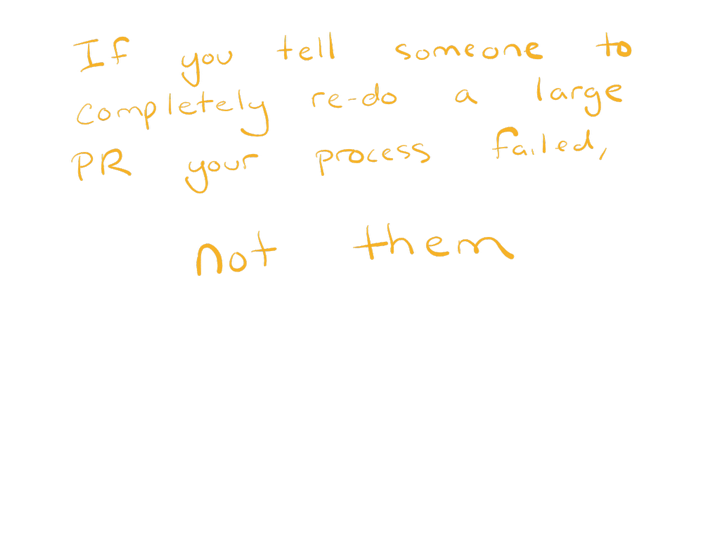 If you tell someone to
completely re-do a large
PR your process failed,
not them